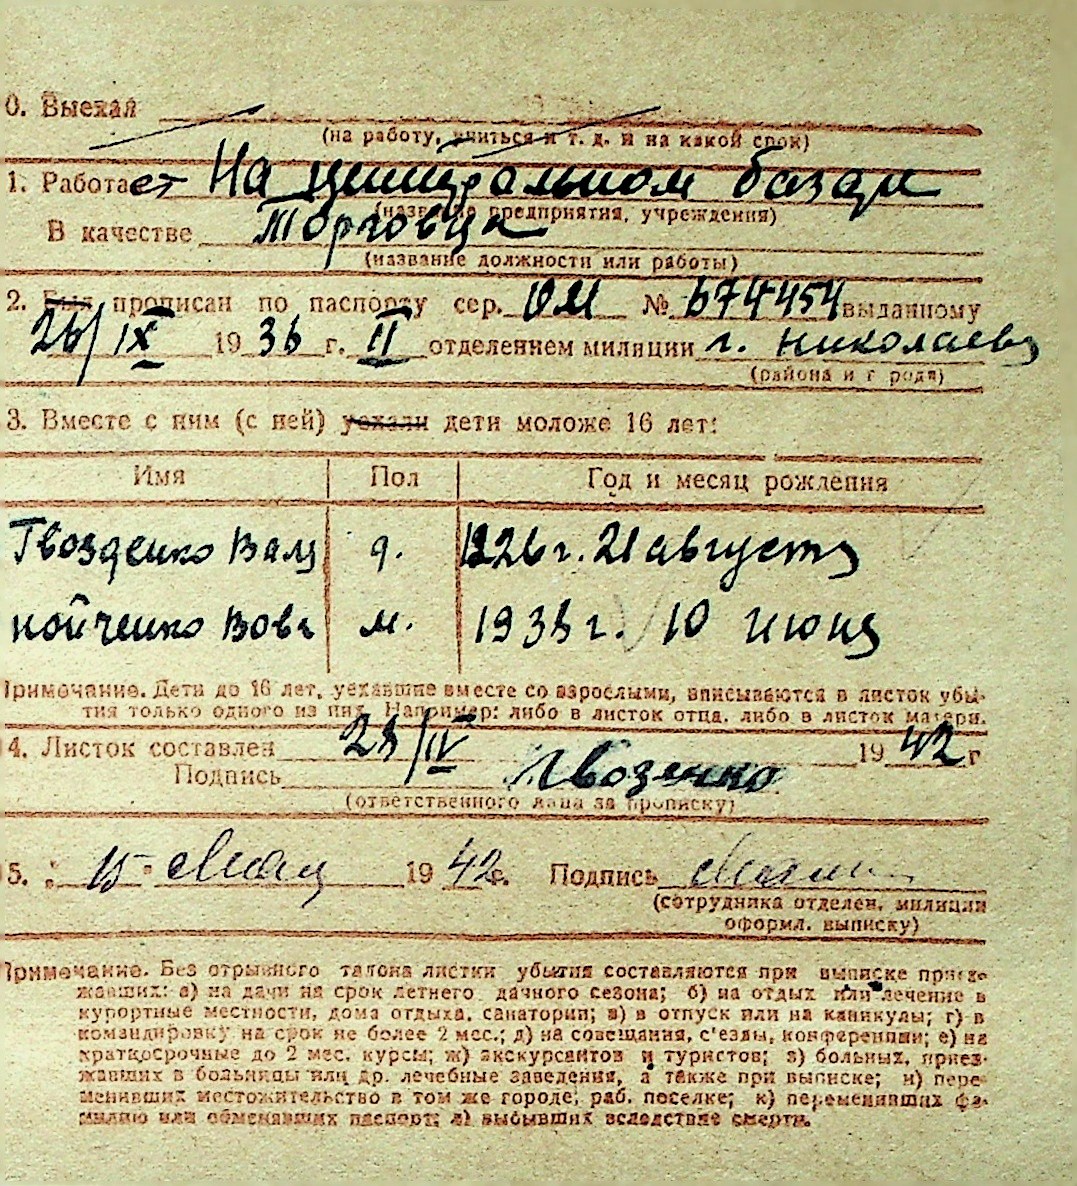 0. Выехал
(на работу, учиться и т. д. и на какой срок)
1. Работает На центральном базаре
(название предприятия, учреждения)
В качестве Торговца
(название должности или работы)
2. Был прописан по паспорту сер. № 674454 выданному
26/IX 1936 г. II отделением милиции г. Николаева
(района и города)
3. Вместе с ним (с ней) уехали дети моложе 16 лет:
Имя Пол Год и месяц рождения
Гвозденко Валя д. 1926 г. 21 августа
Нойченко Вова м. 1938 г. 10 июня
Примечание. Дети до 16 лет, уехавшие вместе со взрослыми, вписываются в листок убы-
тия только одного из них. Например: либо в листок отца, либо в листок матери.
4. Листок составлен 28/IV 1942 г
Подпись Гвозенко
(ответственного лица за прописку)
5. „15" Мая 1942 г. Подпись
(сотрудника отделен. милиции
оформл. выписку)
Примечание. Без отрывного талона листки убытия составляются при выписке приез-
жавших: а) на дачи на срок летнего дачного сезона; б) на отдых или лечение в
курортные местности, дома отдыха, санатории; в) в отпуск или на каникулы; г) в
командировку на срок не более 2 мес.; д) на совещания, с'езды, конференции; е) на
краткосрочные до 2 мес. курсы; ж) экскурсантов и туристов; з) больных, приез-
жавших в больницы или др. лечебные заведения, а также при выписке; и) пере-
менивших местожительство в том же городе, раб. поселке; к) переменивших фа-
милию или обменявших паспорт; л) выбывших вследствие смерти.